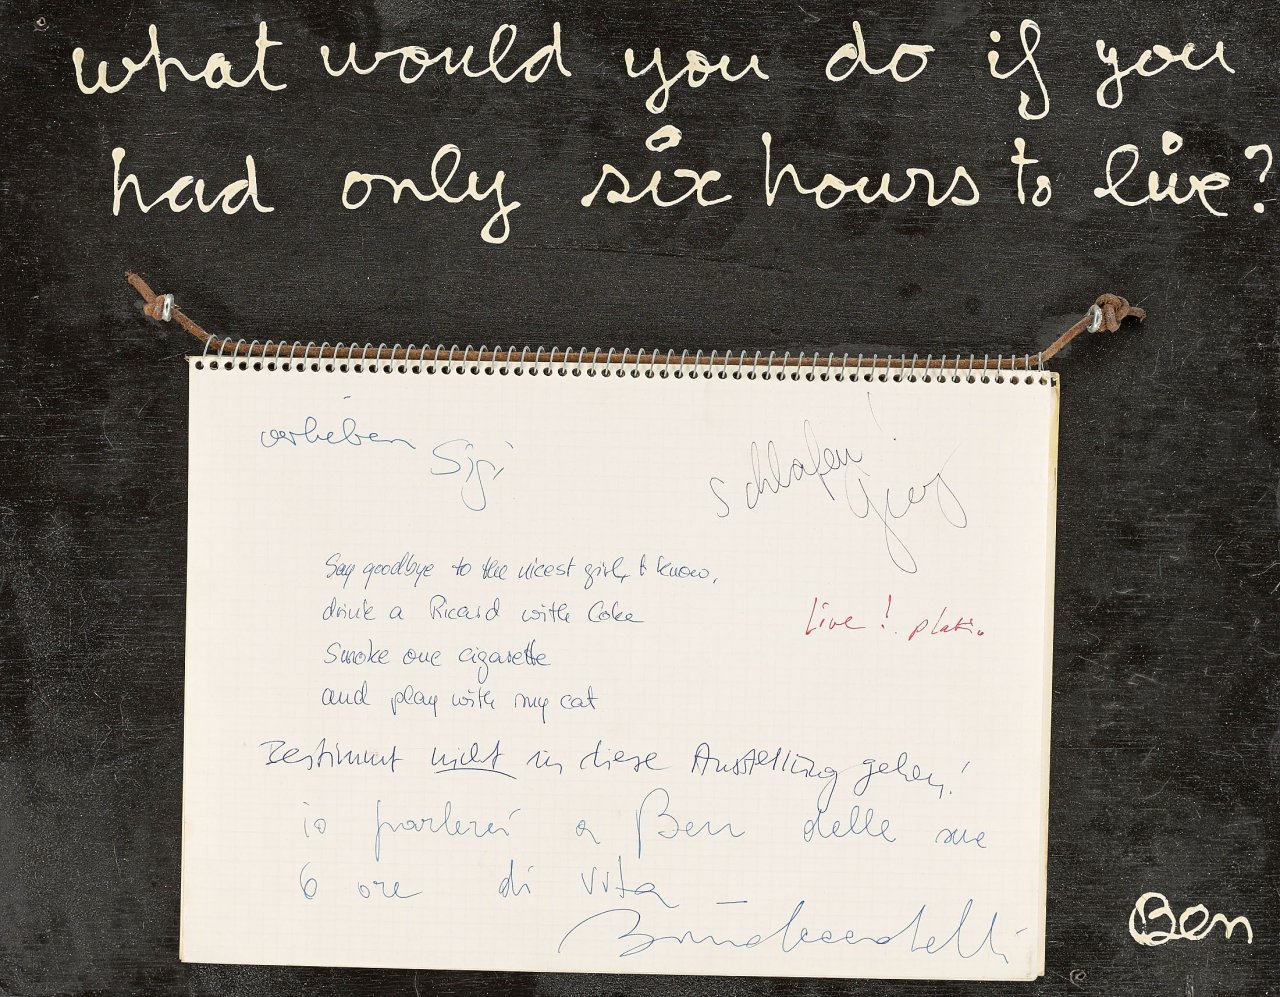 what would you do if you
had only six hours to live?
verlieben Sigi
schlafen!
Say goodbye to the nicest girl, I know,
drink a Ricard with Coke
Smoke one cigarette
and play with my cat
Live!
Bestimmt nicht in diese Ausstellung gehen!
io parlerei a Ben delle sue
6 ore di vita
Ben